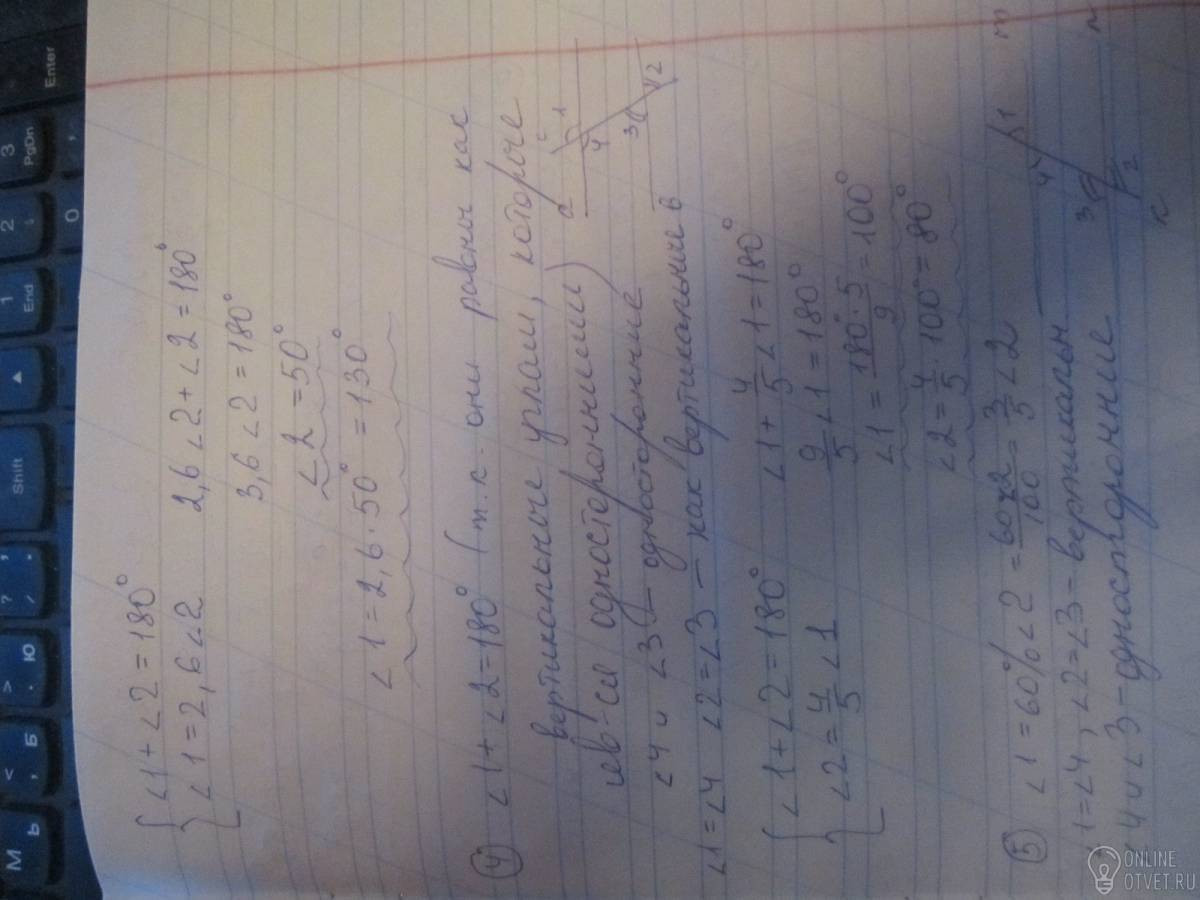 ∠1 + ∠2 = 180°
∠1 = 2,6 ∠2 2,6 ∠2 + ∠2 = 180°
3,6 ∠2 = 180°
∠2 = 50°
∠1 = 2,6 · 50° = 130°
④ ∠1 + ∠2 = 180° (т.к. они равны как
вертикальные углам, которые
явл-ся односторонними)
∠4 и ∠3 – односторонние
∠1 = ∠4 ∠2 = ∠3 – как вертикальные
a
c
1
4
3
2
в
∠1 + ∠2 = 180° ∠1 + 4/5 ∠1 = 180°
∠2 = 4/5 ∠1 9/5 ∠1 = 180°
∠1 = 180° · 5 / 9 = 100°
∠2 = 4/5 · 100° = 80°
⑤ ∠1 = 60% ∠2 = 60∠2/100 = 3/5 ∠2
∠1 = ∠4, ∠2 = ∠3 – вертикальн
∠4 и ∠3 – односторонние
4
1
m
3
2
n
к
Enter
3
PgDn
2
1
End
0
Shift
?
/
>
.
Ю
<
,
Б
М
Ь
ONLINE
OTVET.RU